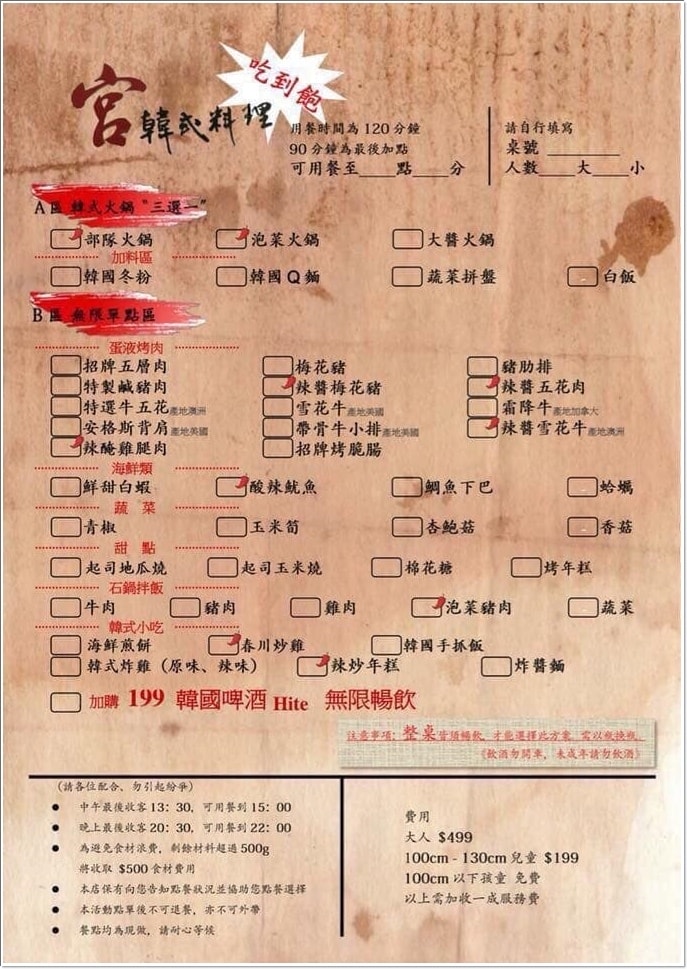 吃到飽
宮韓式料理
用餐時間為 120 分鐘
90 分鐘為最後加點
可用餐至____點____分
請自行填寫
桌號 ________
人數____大____小
A區 韓式火鍋 "三選一"
部隊火鍋 泡菜火鍋 大醬火鍋
加料區
韓國冬粉 韓國Q麵 蔬菜拼盤 白飯
B區 無限單點區
蛋液烤肉
招牌五層肉 梅花豬 豬肋排
特製鹹豬肉 辣醬梅花豬 辣醬五花肉
特選牛五花產地澳洲 雪花牛產地美國 霜降牛產地加拿大
安格斯背肩產地美國 帶骨牛小排產地美國 辣醬雪花牛產地澳洲
辣醃雞腿肉 招牌烤脆腸
海鮮類
鮮甜白蝦 酸辣魷魚 鯛魚下巴 蛤蠣
蔬 菜
青椒 玉米筍 杏鮑菇 香菇
甜 點
起司地瓜燒 起司玉米燒 棉花糖 烤年糕
石鍋拌飯
牛肉 豬肉 雞肉 泡菜豬肉 蔬菜
韓式小吃
海鮮煎餅 春川炒雞 韓國手抓飯
韓式炸雞（原味、辣味） 辣炒年糕 炸醬麵
加購 199 韓國啤酒 Hite 無限暢飲
注意事項：整桌皆須暢飲，才能選擇此方案，需以瓶換瓶。
《飲酒勿開車，未成年請勿飲酒》
（請各位配合、勿引起紛爭）
● 中午最後收客 13：30，可用餐到 15：00
● 晚上最後收客 20：30，可用餐到 22：00
● 為避免食材浪費，剩餘材料超過 500g
將收取 $500 食材費用
● 本店保有向您告知點餐狀況並協助您點餐選擇
● 本活動點單後不可退餐，亦不可外帶
● 餐點均為現做，請耐心等候
費用
大人 $499
100cm - 130cm 兒童 $199
100cm 以下孩童 免費
以上需加收一成服務費